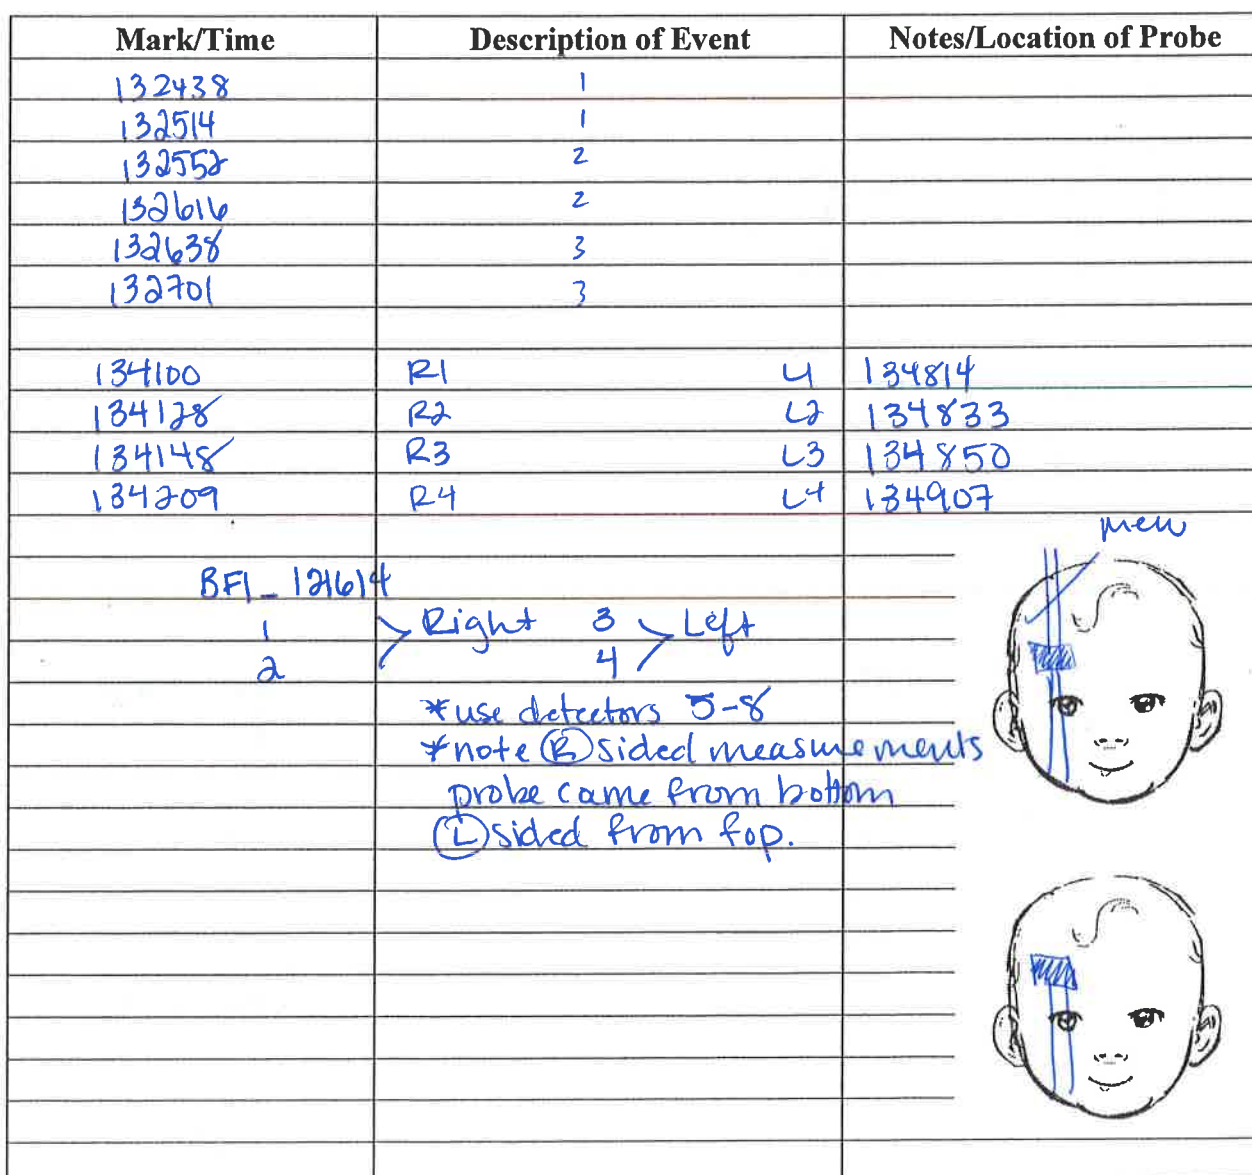 Mark/Time Description of Event Notes/Location of Probe
132438 1
132514 1
132552 2
132616 2
132638 3
132701 3
134100 R1 L1 134814
134128 R2 L2 134833
134148 R3 L3 134850
134209 R4 L4 134907
BFI_121614
1 > Right 3 > Left
2 4
*use detectors 5-8
*note (R) sided measurements
probe came from bottom
(L) sided from top.